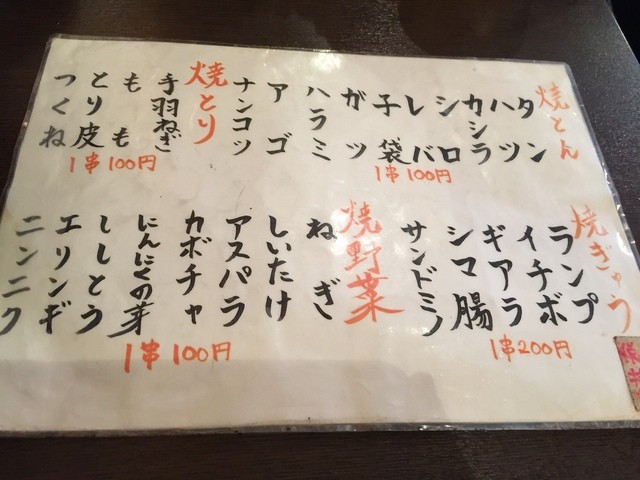 焼とん
タン
ハツ
カシラ
シロ
レバ
子袋
ガツ
ハラミ
アゴ
ナンコツ
1串100円
焼とり
手羽ねぎ
もも
とり皮
つくね
1串100円
焼ぎゅう
ランプ
イチボ
ギアラ
シマ腸
サンドミノ
1串200円
焼野菜
ねぎ
しいたけ
アスパラ
カボチャ
にんにくの芽
ししとう
エリンギ
ニンニク
1串100円